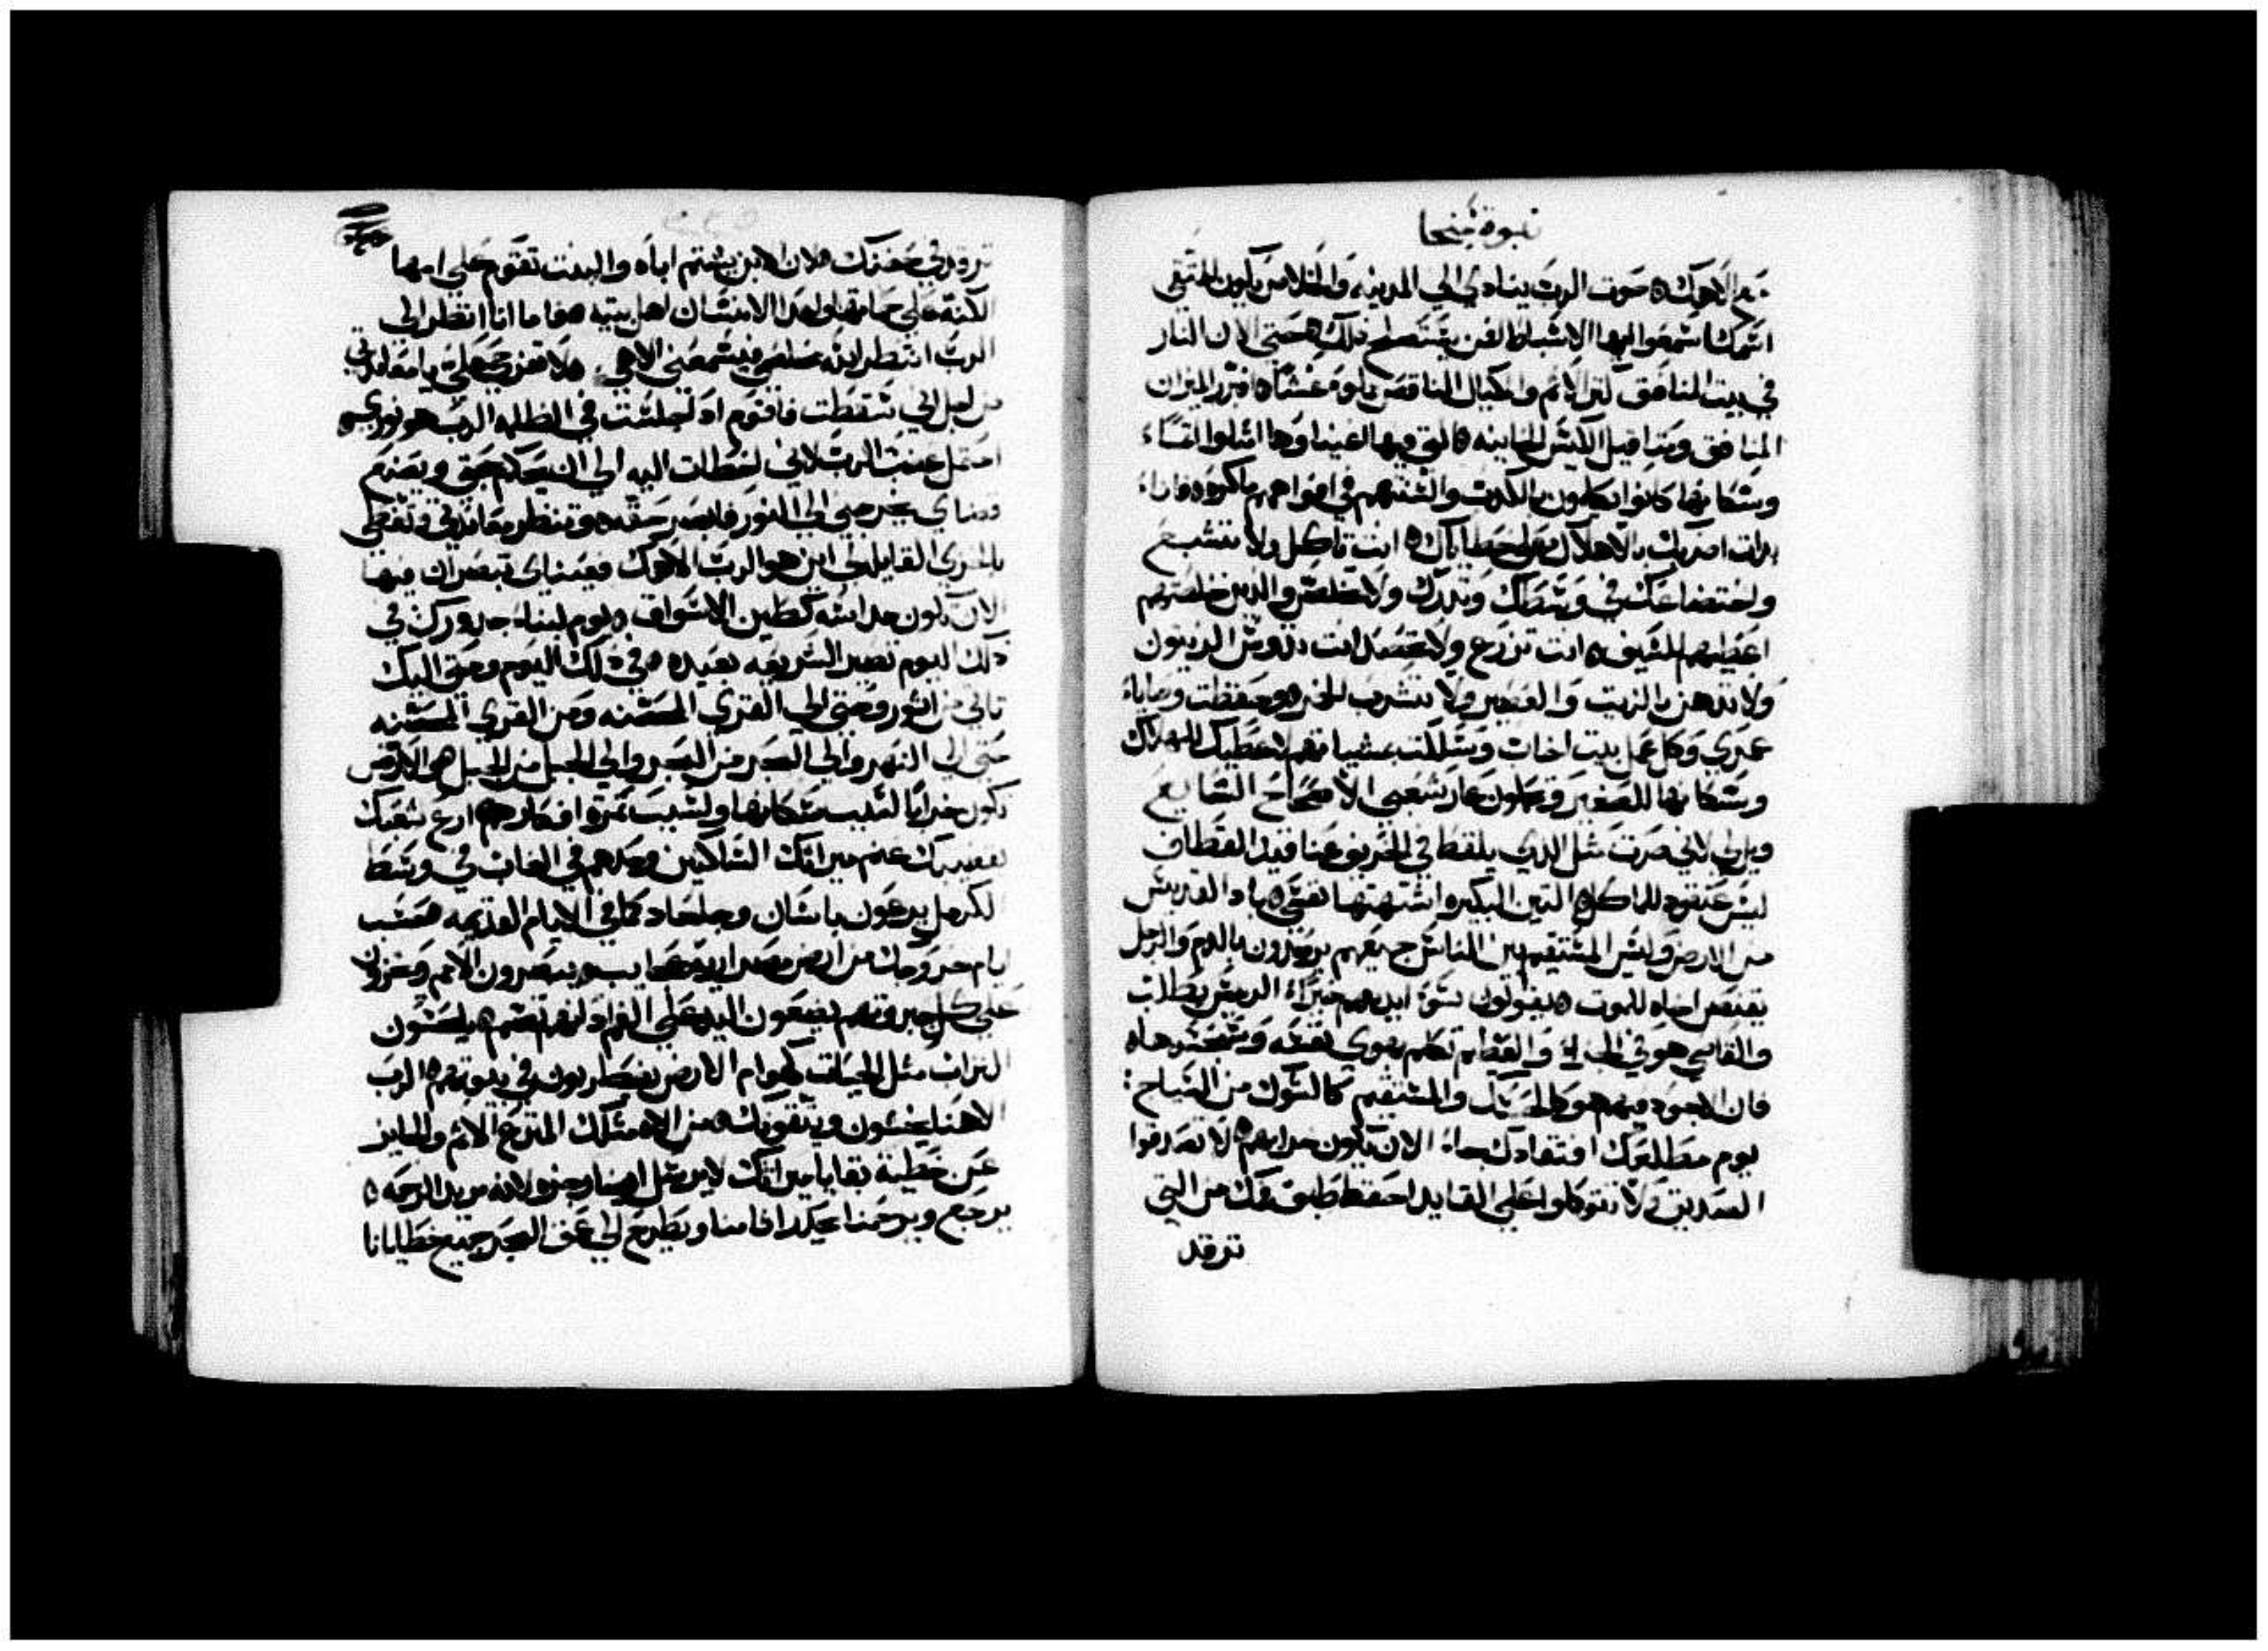 نبوة ميخا
مع الاهك ه صوت الرب ينادي الي المدينه والخلاص يكون للمتقي
اسمك اسمعوا ايها الاسباط لمن يستصلح ذلك ه حتي الان النار
في بيت المنافق كنز الاثم والمكيال الناقص مغشا ه افترر الميزان
المنافق ومثاقيل الكيس الخاينه ه التي فيها اغنياوها امتلوا اثما
وسكانها كانوا يتكلمون بالكدب والسنتهم في افواههم ماكره ه فانا
بدات اضربك بالاهلاك علي خطاياك ه انت تاكل ولا تشبع
واختضاعك في وسطك وتدرك ولا تخلص والدين خلصتهم
اعطيهم للسيف ه انت تزرع ولا تحصد انت تدوس الزيتون
ولا تدهن بالزيت والعصير ولا تشرب الخمر ه وحفظت وصايا
عمري وكل عمل بيت اخاب وسلكت بمشياتهم لاعطيك للهلاك
وسكانها للصفير وتحملون عار شعبي الاصحاح السابع
ويل لي لاني صرت مثل الدي يلقط في الخريف عناقيد القطاف
ليس عنقود للماكل ه التين البكيره اشتهتها نفسي ه باد القديس
من الارض وليس المستقيم بين الناس جميعهم يرصدون بالدم والرجل
يقتنص اخاه للموت ه يقولون سوء ايديهم خيرا الريس يطلب
والقاضي هو في الجزا والعظيم تكلم بهوي نفسه
فان الاجود فيهم هو كالحسك والمستقيم كالشوك من السياج
يوم مطلعك افتقادك جاء الان يكون خرابهم ه لا تصدقوا
الصديق ولا تتوكلوا علي القايد احفظ طبق فمك من التي
ترقد
ترقد في حضنك ه لان الابن يشتم اباه والبنت تقوم علي امها
الكنه علي حماتها واعدا الانسان اهل بيته ه فاما انا انظر الي
الرب انتظر الله مخلصي فيسمعني الاهي ه لا تفرحي علي يا معاندتي
من اجل اني سقطت فاقوم اد اجلست في الظلمه الرب هو نوري ه
احتمل غضب الرب لاني اخطات اليه الي ان يحكم حقي ويصنع
قضاي يخرجني الي النور فابصر حقه ه وتنظر معاندتي وتغطي
بالخزي القايله لي اين هو الرب الاهك فعيناي تبصران فيها
الان تكون مداسه كطين الاسواق ه يوم لبنا جدورك في
دلك اليوم تصير الشريعه بعيده ه في دلك اليوم وحتي اليك
تاتي من اثور وحتي الي القري المحصنه ومن القري المحصنه
حتي الي النهر والي البحر من البحر والي الجبل من الجبل ه الارض
تكون خرابا لسبب سكانها ولسبب ثمرة افكارهم ه ارع شعبك
بقضيبك غنم ميراتك الساكنين وحدهم في الغاب في وسط
الكرمل يرعون باشان وجلعاد كما في الايام القديمه ه كحسب
ايام خروجك من ارض مصر اريه عجايب ه ينظرون الامم ويخزون
علي كل جبروتهم يضعون اليد علي الفم ه يلحسون
التراب مثل الحيات كهوام الارض يضطربون في بيوتهم ه الرب
الاهنا يخشون ويتقونك ه من الاه مثلك المنزع الاثم والجايز
عن خطية بقايا ميراتك لا يرسل ايضا رجزه لانه مريد الرحمه ه
يرجع ويرحمنا ويطرح الي عمق البحر جميع خطايانا